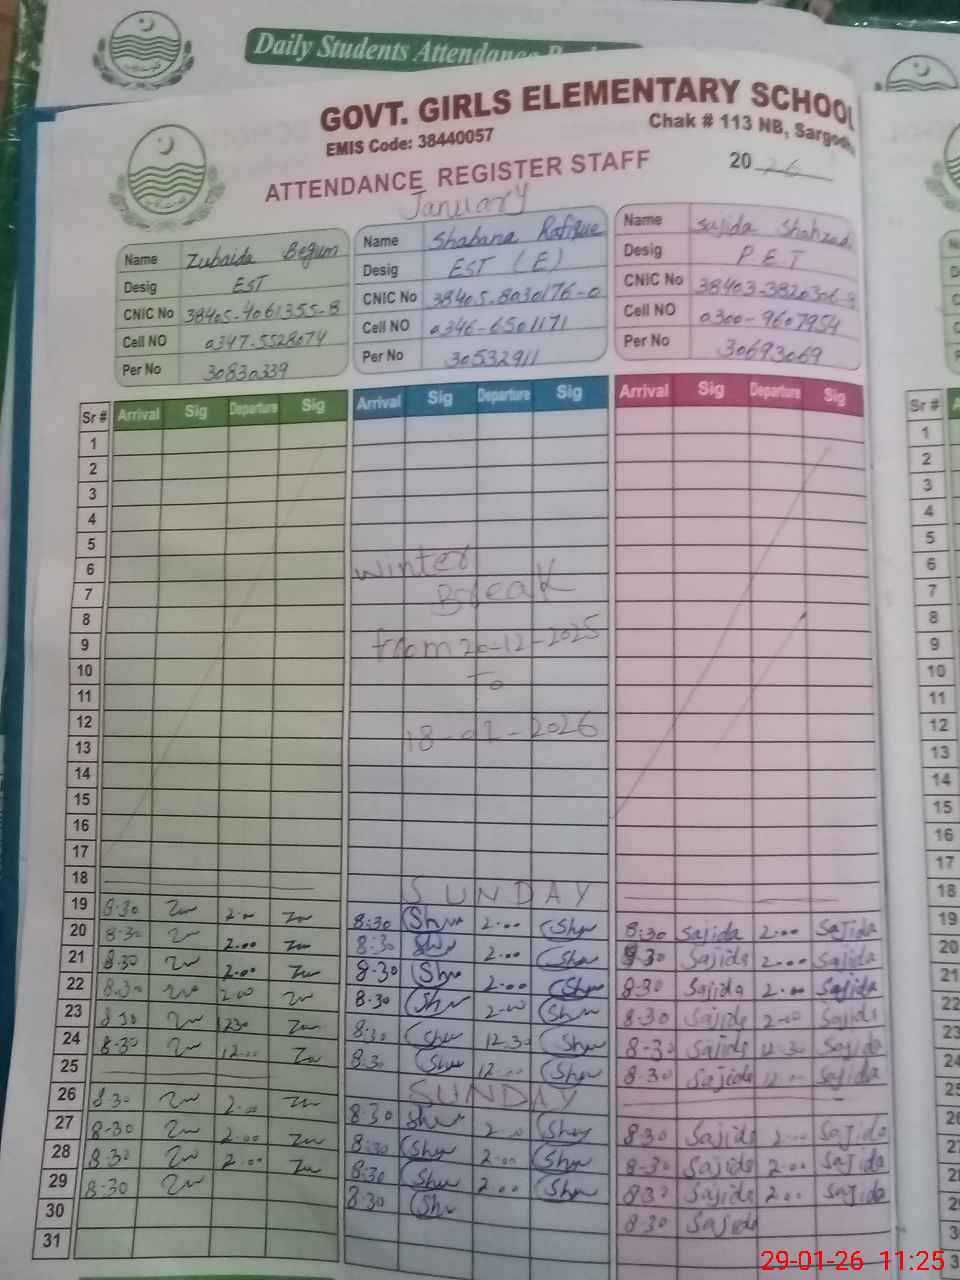 Daily Students Attendance
GOVT. GIRLS ELEMENTARY SCHOOL
EMIS Code: 38440057
Chak # 113 NB,
ATTENDANCE REGISTER STAFF
20 26
January
Name Zubaida Begum
Desig EST
CNIC No 38405-4061355-8
Cell NO 0347-5528074
Per No 30830339
Name Shabana Rafique
Desig EST (E)
CNIC No 38405-8030176-0
Cell NO 0346-6501171
Per No 30532911
Name Sajida Shahzad
Desig P.E.T
CNIC No
Cell NO 0300-9607954
Per No 30693069
Sr # Arrival Sig Departure Sig Arrival Sig Departure Sig Arrival Sig Departure Sig
1
2
3
4
5
6 winter
7 Break
8
9 from 20-12-2025
10 To
11
12 18-01-2026
13
14
15
16
17
18 SUNDAY
19 8:30 2:00 8:30 Shu 2:00 Shu 8:30 Sajida 2:00 Sajida
20 8:30 2:00 8:30 Shu 2:00 Shu 8:30 Sajida 2:00 Sajida
21 8:30 2:00 8:30 Shu 2:00 Shu 8:30 Sajida 2:00 Sajida
22 8:30 2:00 8:30 Shu 2:00 Shu 8:30 Sajida 2:00 Sajida
23 8:30 12:30 8:30 Shu 12:30 Shu 8:30 Sajida 12:30 Sajida
24 8:30 12:00 8:30 Shu 12:00 Shu 8:30 Sajida 12:00 Sajida
25 SUNDAY
26 8:30 2:00 8:30 Shu 2:00 Shu 8:30 Sajida 2:00 Sajida
27 8:30 2:00 8:30 Shu 2:00 Shu 8:30 Sajida 2:00 Sajida
28 8:30 2:00 8:30 Shu 2:00 Shu 8:30 Sajida 2:00 Sajida
29 8:30 8:30 Shu 8:30 Sajida
30
31
Sr #
1
2
3
4
5
6
7
8
9
10
11
12
13
14
15
16
17
18
19
20
21
22
23
24
29-01-26 11:25